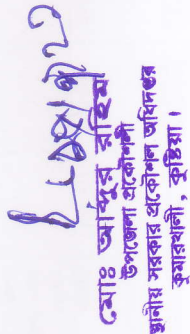 মোঃ আব্দুর রহিম
উপজেলা প্রকৌশলী
স্থানীয় সরকার প্রকৌশল অধিদপ্তর
কুমারখালী, কুষ্টিয়া।